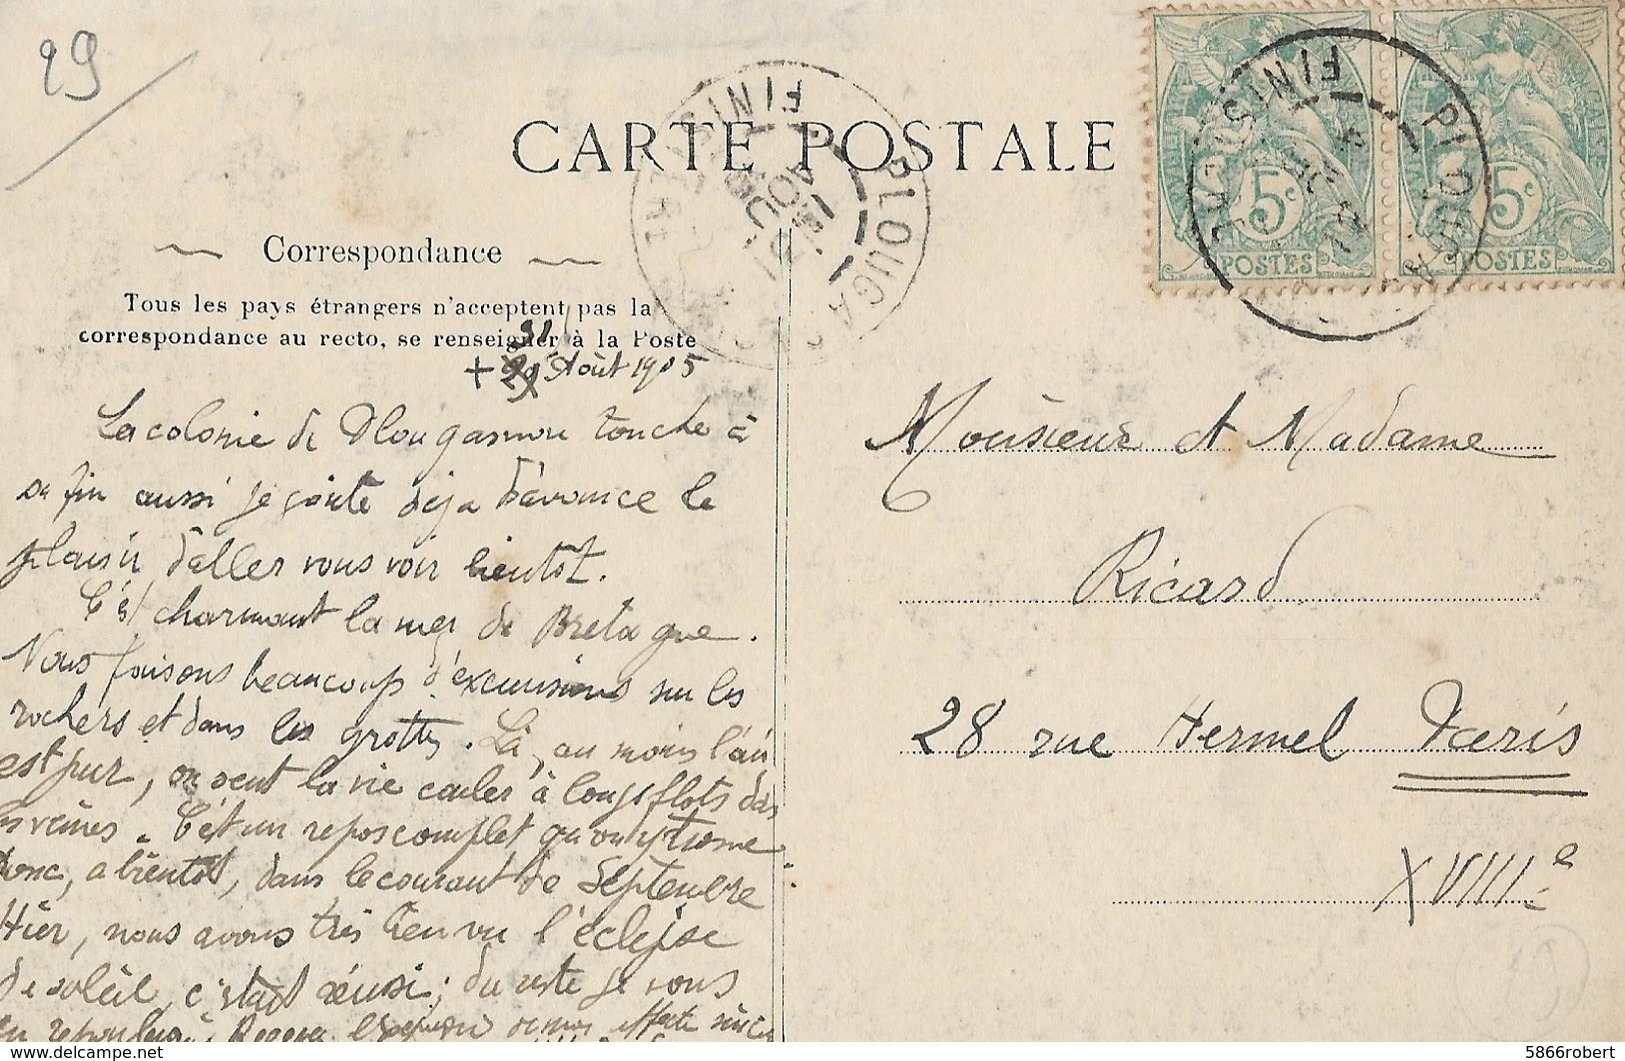 29
CARTE POSTALE
Correspondance
Tous les pays étrangers n'acceptent pas la
correspondance au recto, se renseigner à la Poste
+ 31 Août 1905
La colonie de Plougasnou touche à
sa fin aussi je goûte déja d'avance le
plaisir d'aller vous voir bientôt.
C'est charmant la mer de Bretagne.
Nous faisons beaucoup d'excursions sur les
rochers et dans les grottes. Là, au moins l'air
est pur, on sent la vie couler à longs flots dans
les veines. C'est un repos complet qu'on y trouve
donc, a bientôt, dans le courant de Septembre
Hier, nous avons très bien vu l'éclipse
de soleil, c'était réussi; du reste je vous
en reparlerai. Recevez l'expression de mon affectueux
FINISTERE
PLOUGA
31
AOUT
5c
POSTES
5c
POSTES
FINISTERE
Monsieur et Madame
Ricard
28 rue Hermel Paris
XVIIIe
5866robert